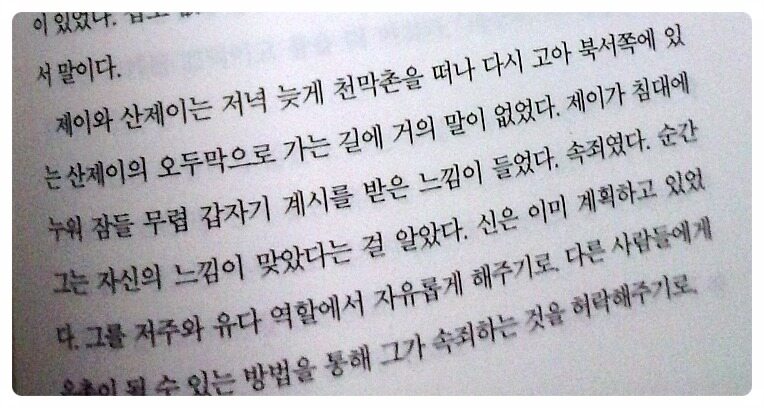 이 있었다.
서 말이다.
제이와 산제이는 저녁 늦게 천막촌을 떠나 다시 고아 북서쪽에 있
는 산제이의 오두막으로 가는 길에 거의 말이 없었다. 제이가 침대에
누워 잠들 무렵 갑자기 계시를 받은 느낌이 들었다. 속죄였다. 순간
그는 자신의 느낌이 맞았다는 걸 알았다. 신은 이미 계획하고 있었
다. 그를 저주와 유다 역할에서 자유롭게 해주기로. 다른 사람들에게
될 수 있는 방법을 통해 그가 속죄하는 것을 허락해주기로.